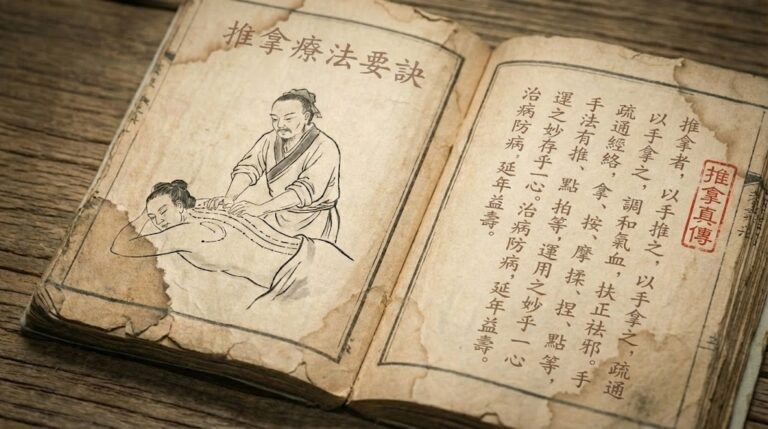 推拿療法要訣
推拿真傳
推拿者，以手推之，以手拿之，疏通
以手拿之，調和氣血，扶正祛邪。手
疏通經絡，拿、按、摩揉、捏、點等，
手法有推、點拍等，運用之妙乎一心
運之妙存乎一心。治病防病，延年益壽。
治病防病，延年益壽。